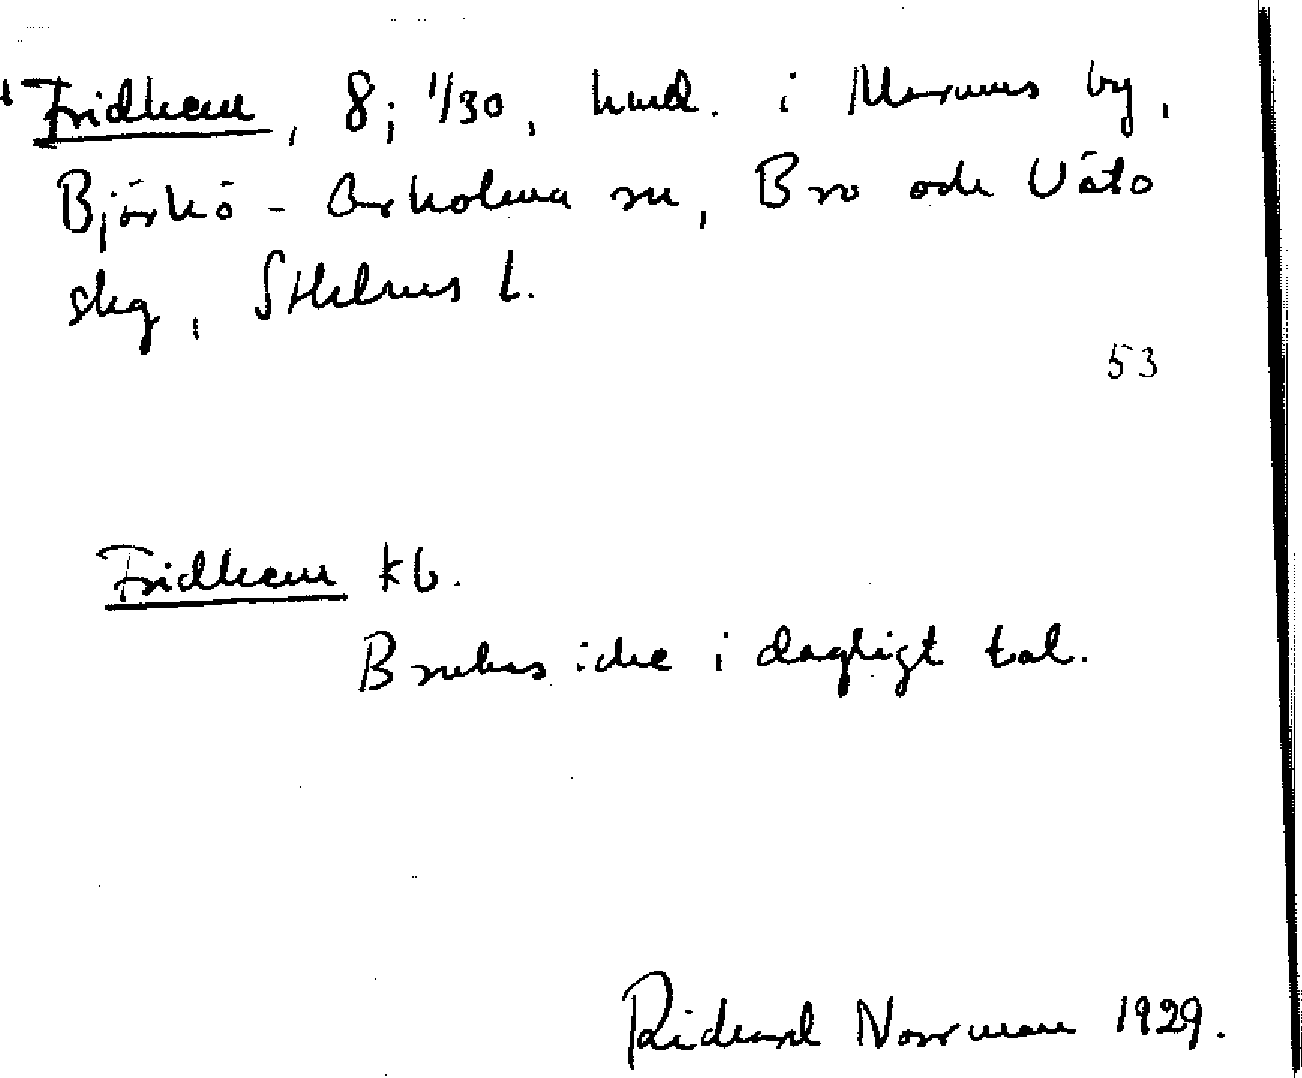 Fridhem, 8; 1/30, hmd. i Marums by,
Björkö-Arholma sn, Bro och Vätö
skg, Sthlms l.
53
Fridhem kb.
Brukas icke i dagligt tal.
Richard Norrman 1929.